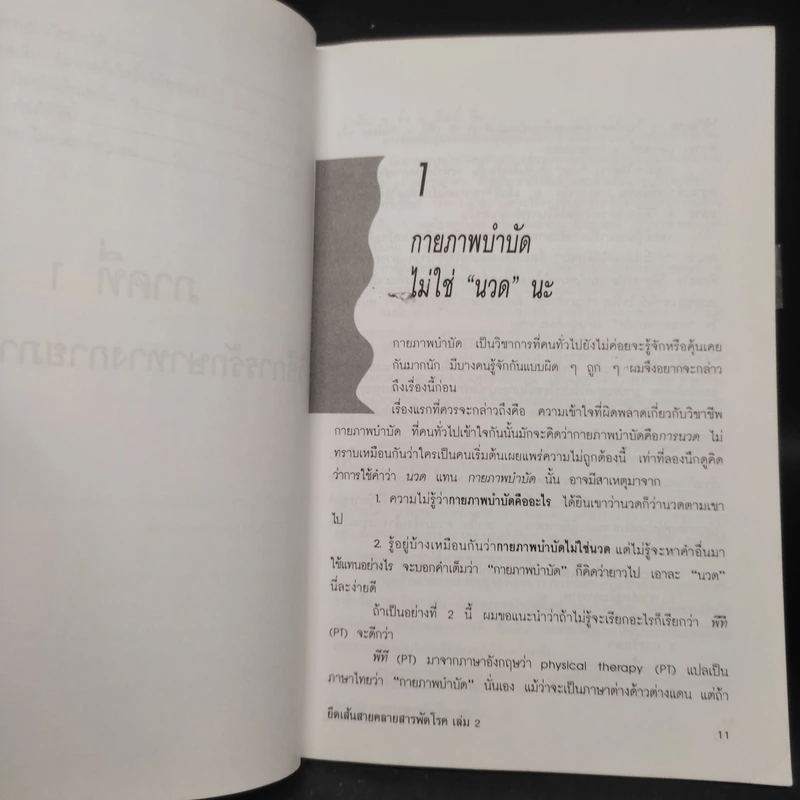 1
กายภาพบำบัด
ไม่ใช่ “นวด” นะ
กายภาพบำบัด เป็นวิชาการที่คนทั่วไปยังไม่ค่อยจะรู้จักหรือคุ้นเคย
กันมากนัก มีบางคนรู้จักกันแบบผิด ๆ ถูก ๆ ผมจึงอยากจะกล่าว
ถึงเรื่องนี้ก่อน
เรื่องแรกที่ควรจะกล่าวถึงคือ ความเข้าใจที่ผิดพลาดเกี่ยวกับวิชาชีพ
กายภาพบำบัด ที่คนทั่วไปเข้าใจกันนั้นมักจะคิดว่ากายภาพบำบัดคือการนวด ไม่
ทราบเหมือนกันว่าใครเป็นคนเริ่มต้นเผยแพร่ความไม่ถูกต้องนี้ เท่าที่ลองนึกดูคิด
ว่าการใช้คำว่า นวด แทน กายภาพบำบัด นั้น อาจมีสาเหตุมาจาก
1. ความไม่รู้ว่ากายภาพบำบัดคืออะไร ได้ยินเขาว่านวดก็ว่านวดตามเขา
ไป
2. รู้อยู่บ้างเหมือนกันว่ากายภาพบำบัดไม่ใช่นวด แต่ไม่รู้จะหาคำอื่นมา
ใช้แทนอย่างไร จะบอกคำเต็มว่า “กายภาพบำบัด” ก็คิดว่ายาวไป เอาละ “นวด”
นี่ละง่ายดี
ถ้าเป็นอย่างที่ 2 นี้ ผมขอแนะนำว่าถ้าไม่รู้จะเรียกอะไรก็เรียกว่า พีที
(PT) จะดีกว่า
พีที (PT) มาจากภาษาอังกฤษว่า physical therapy (PT) แปลเป็น
ภาษาไทยว่า “กายภาพบำบัด” นั่นเอง แม้ว่าจะเป็นภาษาต่างด้าวต่างแดน แต่ถ้า
ยืดเส้นสายคลายสารพัดโรค เล่ม 2
11